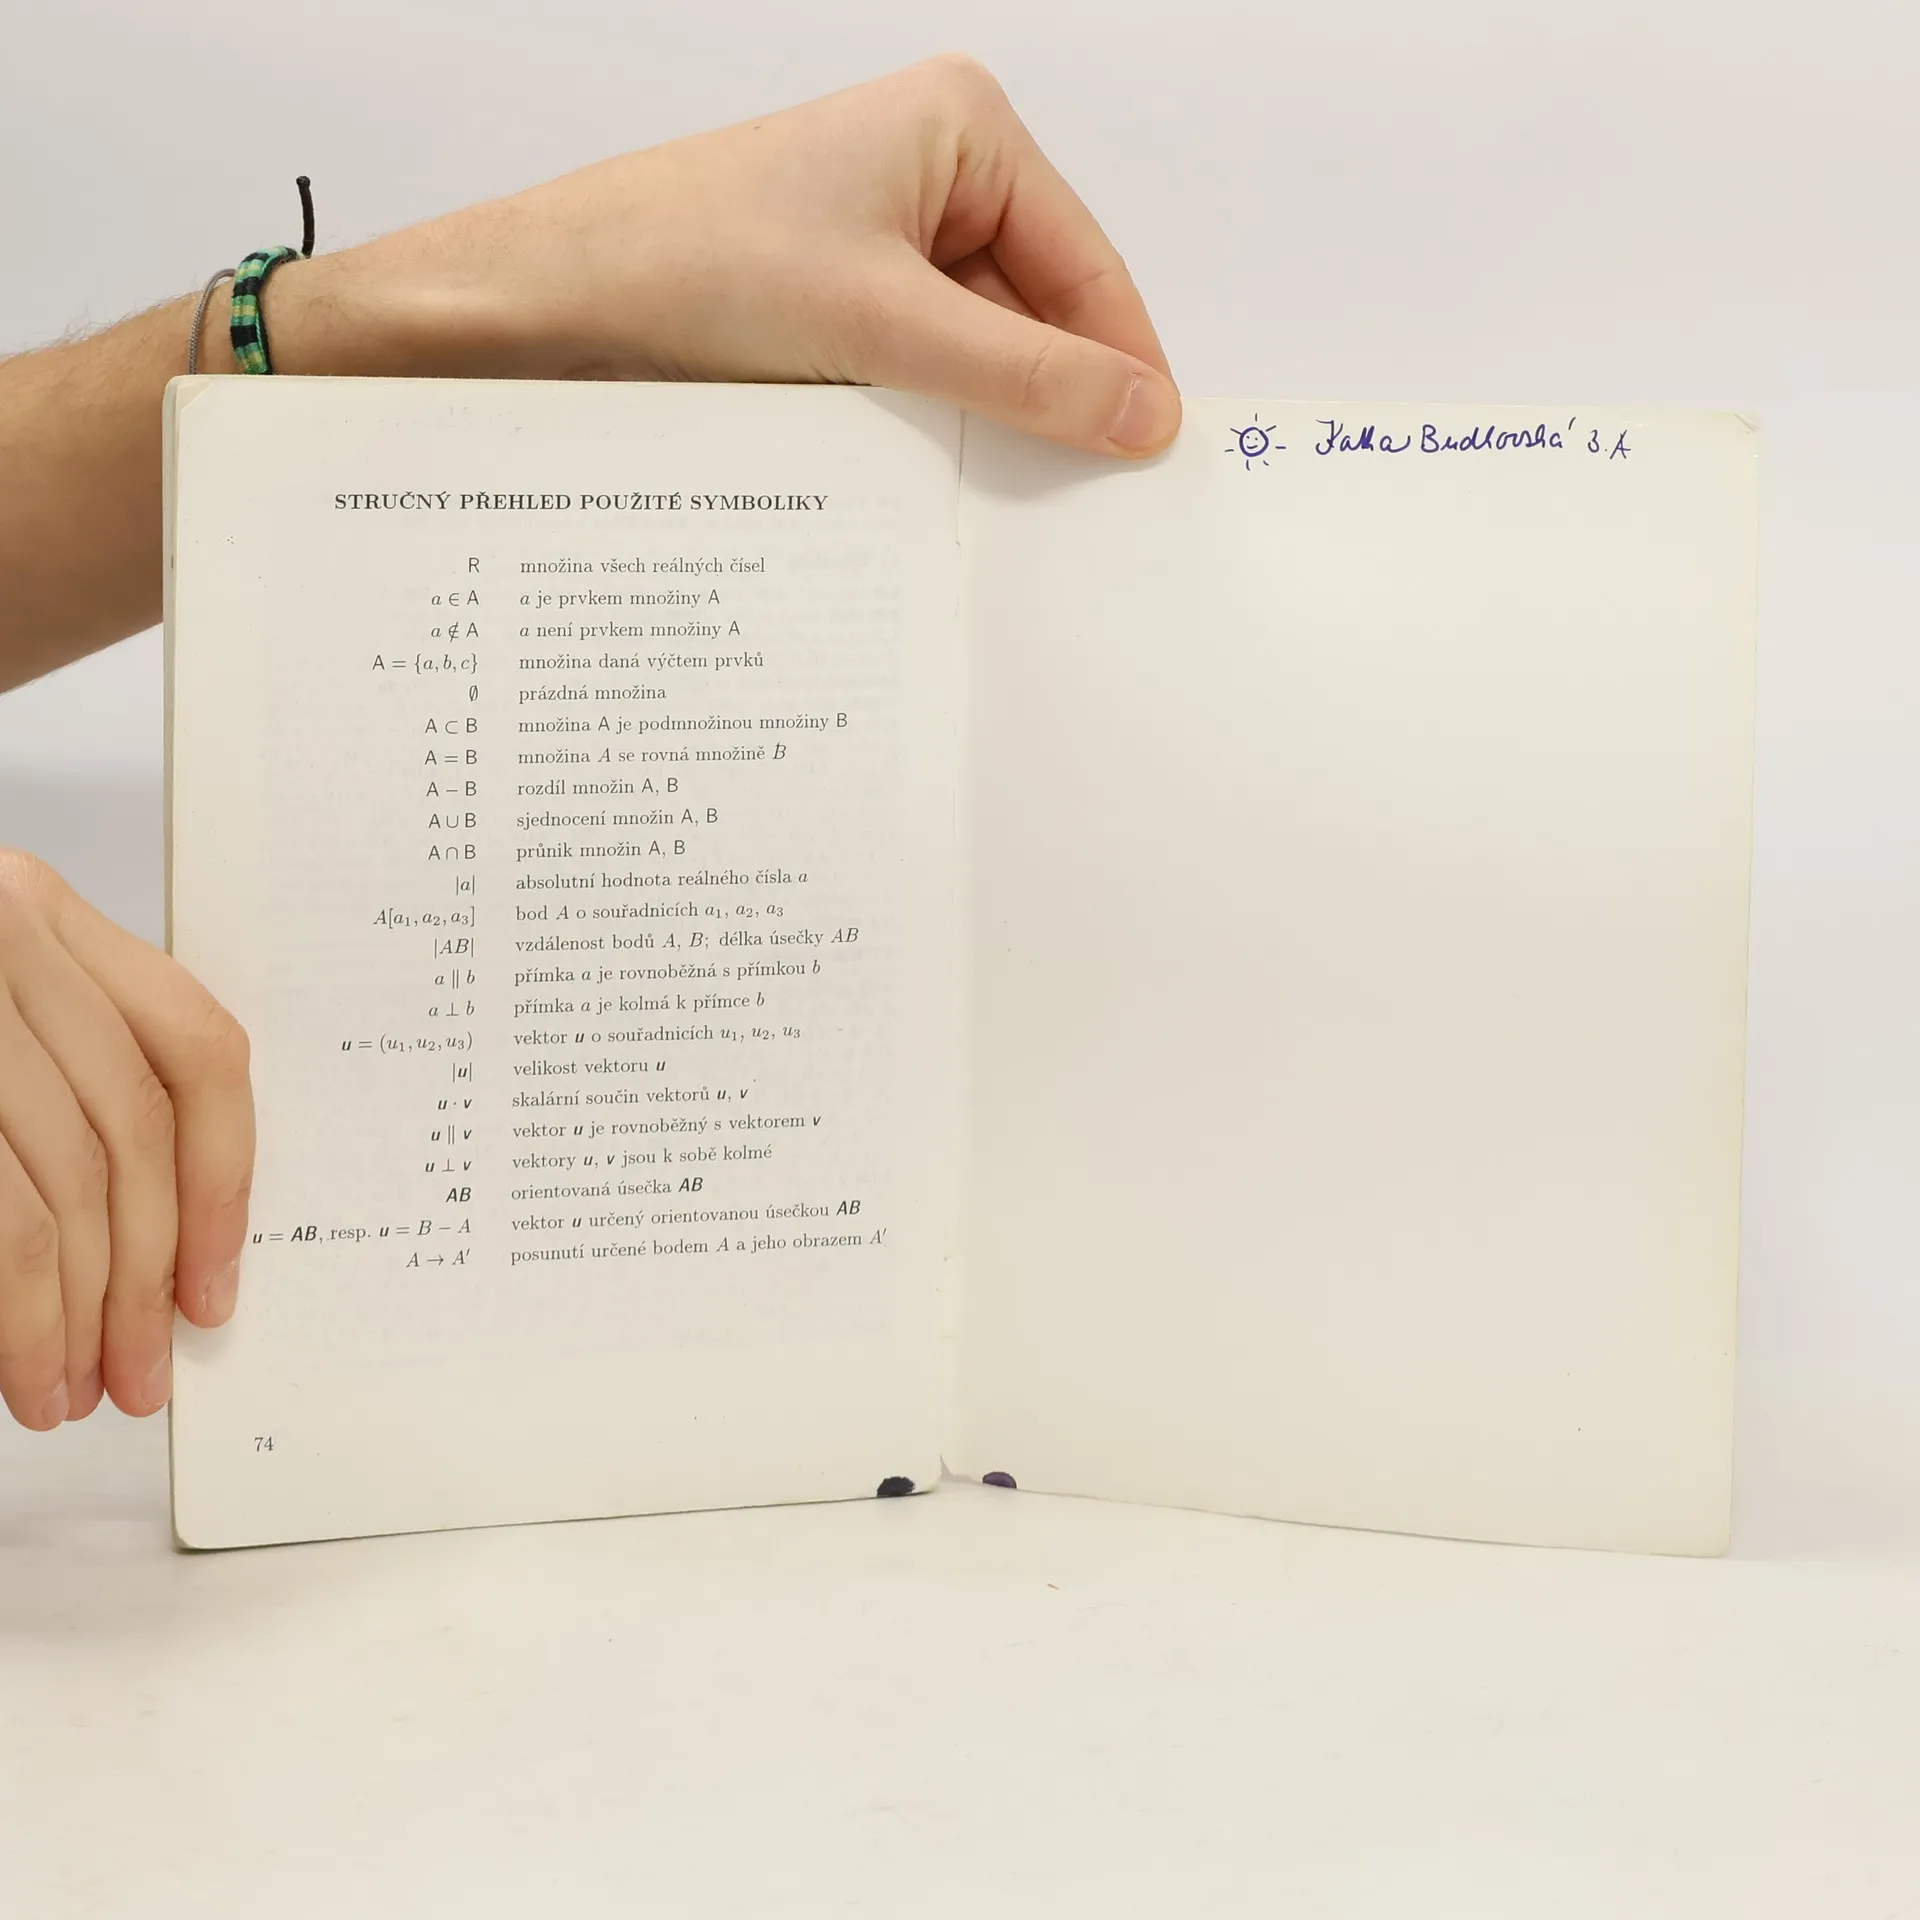 STRUČNÝ PŘEHLED POUŽITÉ SYMBOLIKY
R množina všech reálných čísel
a ∈ A a je prvkem množiny A
a ∉ A a není prvkem množiny A
A = {a, b, c} množina daná výčtem prvků
∅ prázdná množina
A ⊂ B množina A je podmnožinou množiny B
A = B množina A se rovná množině B
A − B rozdíl množin A, B
A ∪ B sjednocení množin A, B
A ∩ B průnik množin A, B
|a| absolutní hodnota reálného čísla a
A[a₁, a₂, a₃] bod A o souřadnicích a₁, a₂, a₃
|AB| vzdálenost bodů A, B; délka úsečky AB
a ∥ b přímka a je rovnoběžná s přímkou b
a ⊥ b přímka a je kolmá k přímce b
u = (u₁, u₂, u₃) vektor u o souřadnicích u₁, u₂, u₃
|u| velikost vektoru u
u · v skalární součin vektorů u, v
u ∥ v vektor u je rovnoběžný s vektorem v
u ⊥ v vektory u, v jsou k sobě kolmé
AB orientovaná úsečka AB
u = AB, resp. u = B − A vektor u určený orientovanou úsečkou AB
A → A′ posunutí určené bodem A a jeho obrazem A′
74
Katka Budlovská 3.A